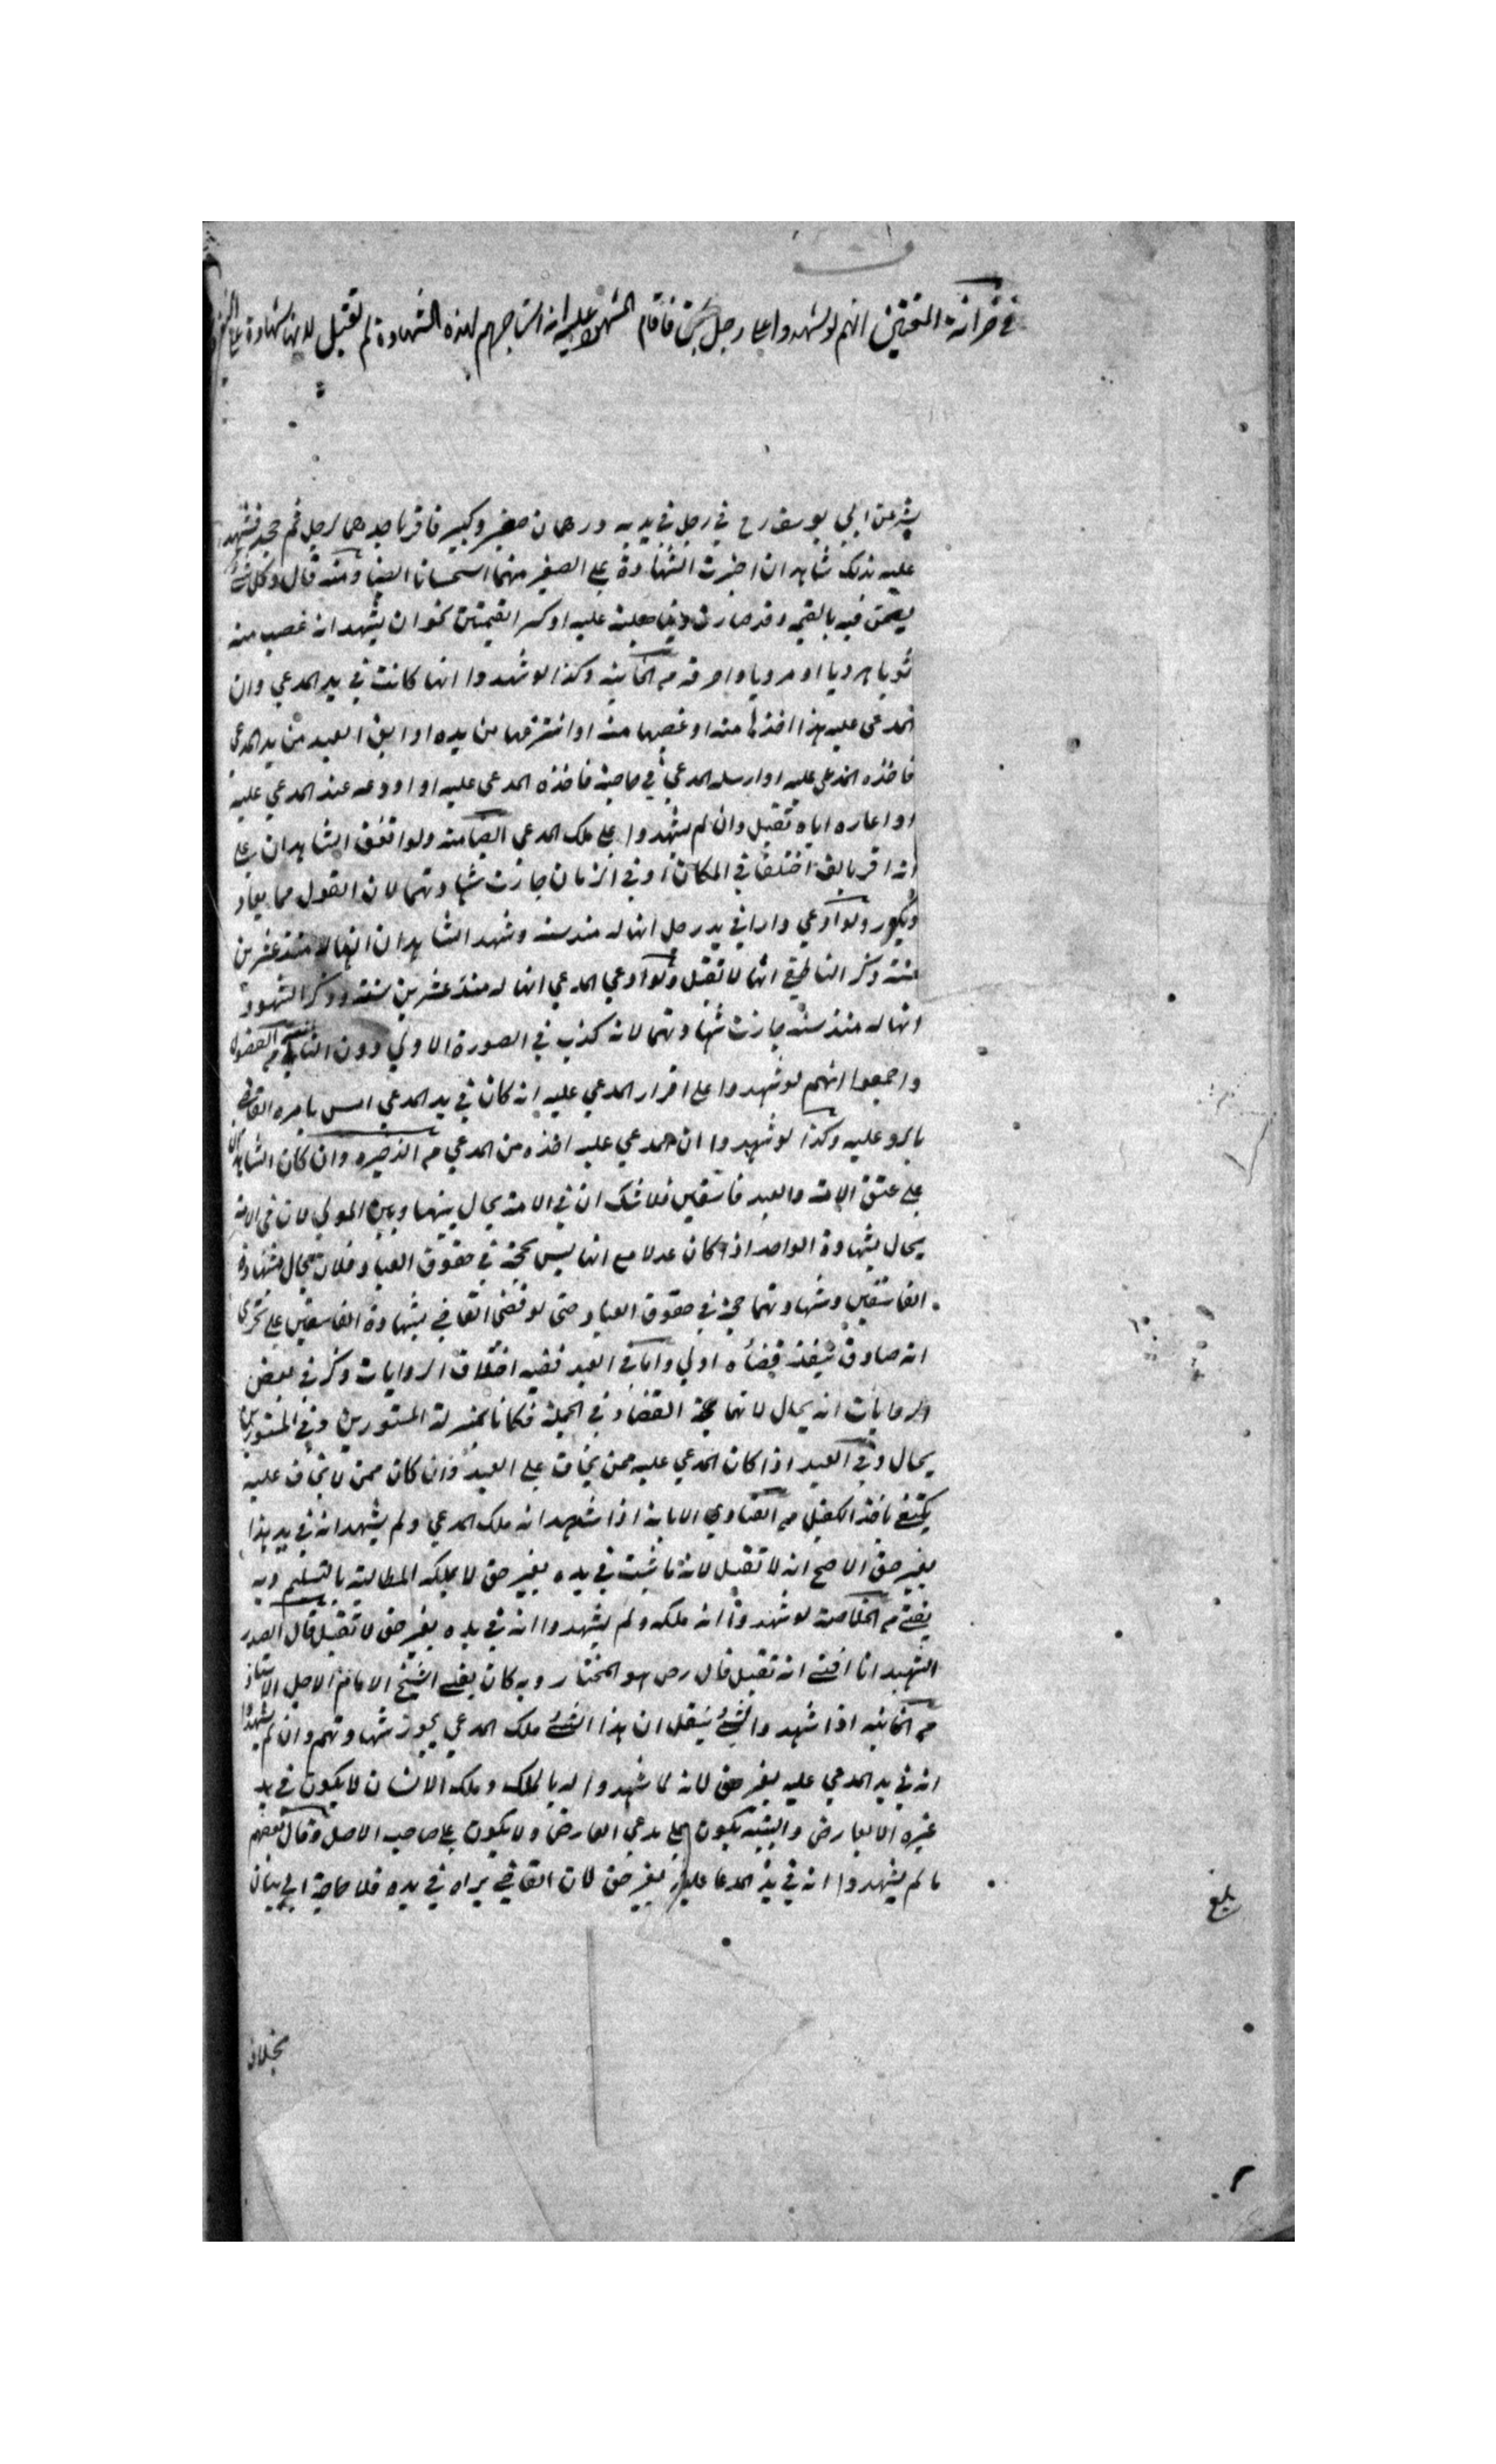 في خزانة المفتين انهم لو شهدوا على رجل بشئ فاقام المشهود عليه انه استاجرهم لهذه الشهادة لم تقبل لانها شهادة على النفي
بشر عن ابي يوسف رح في رجل في يديه درهمان صغير وكبير فاقر باحدهما لرجل ثم جحد فشهد
عليه بذلك شاهدان اجزت الشهادة على الصغير منهما استحسانا ايضا ومنه قال وكل شئ
يقضى فيه بالقيمة وقد صارت دينا عليه اوكس القيمتين نحو ان يشهد انه غصب منه
ثوبا هرويا او مرويا واحرقه من الخانية وكذا لو شهدوا انها كانت في يد المدعي وان
المدعى عليه هذا اخذها منه او غصبها منه او انتزعها من يده او ابق العبد من يد المدعي
فاخذه المدعى عليه او ارسله المدعي في حاجة فاخذه المدعى عليه او اودعه عند المدعي عليه
او اعاره اياه تقبل وان لم يشهدوا على ملك المدعي ايضا منه ولو اتفق الشاهدان على
انه اقر بالف اختلفا في المكان او في الزمان جازت شهادتهما لان القول مما يعاد
ويكرر ولو ادعي دارا في يد رجل انها له منذ سنة وشهد الشاهدان انها له منذ عشرين
سنة ذكر الناطفي انها لا تقبل ولو ادعي المدعي انها له منذ عشرين سنة وذكر الشهود
انها له منذ سنة جازت شهادتهما لانه كذب في الصورة الاولي دون الثانية من الفصول
واجمعوا انهم لو شهدوا على اقرار المدعي عليه انه كان في يد المدعي امس يامره القاضي
بالرد عليه وكذا لو شهدوا ان المدعي عليه اخذه من المدعي من الذخيره وان كان الشاهدان
على عتق الامة والعبد فاسقين فلا شك ان في الامة يحال بينهما وبين المولي لان في الامة
يحال بشهادة الواحد اذا كان عدلا مع انها ليس بحجة في حقوق العباد فلان يحال بشهادة
الفاسقين وشهادتهما حجة في حقوق العباد حتى لو قضى القاضي بشهادة الفاسقين على تحرى
انه صادق ينفذ قضاؤه اولي واما في العبد ففيه اختلاف الروايات ذكر في بعض
الروايات انه يحال لانهما حجة القضاء في الجملة فكانا بمنزلة المستورين وفي المستورين
يحال وفي العبد اذا كان المدعي عليه ممن يخاف على العبد وان كان ممن لا يخاف عليه
يكتفى باخذ الكفيل من الفتاوي اذا شهد انه ملك المدعي ولم يشهد انه في يد هذا
بغير حق الاصح انه لا تقبل لانه ما ثبت في يده بغير حق لا يملك المطالبة بالتسليم وبه
يفتي من الخلاصة لو شهدوا انه ملكه ولم يشهدوا انه في يده بغير حق لا تقبل قال الصدر
الشهيد انا افتي انه تقبل قال رض هو المختار وبه كان يفتي الشيخ الامام الاجل الاستاذ
من الخانيه اذا شهدوا بشئ ينقل ان هذا الشئ ملك المدعي يجوز شهادتهم وان لم يشهدوا
انه في يد المدعي عليه بغير حق لانه لما شهدوا له بالملك وملك الانسان لا يكون في يد
غيره الا بعارض والبينة يكون على مدعي العارض ولا يكون على صاحب الاصل وقال بعضهم
ما لم يشهدوا انه في يد المدعا عليه بغير حق لان القاضي يراه في يده فلا حاجة الي بيان
بلغ
بخلاف